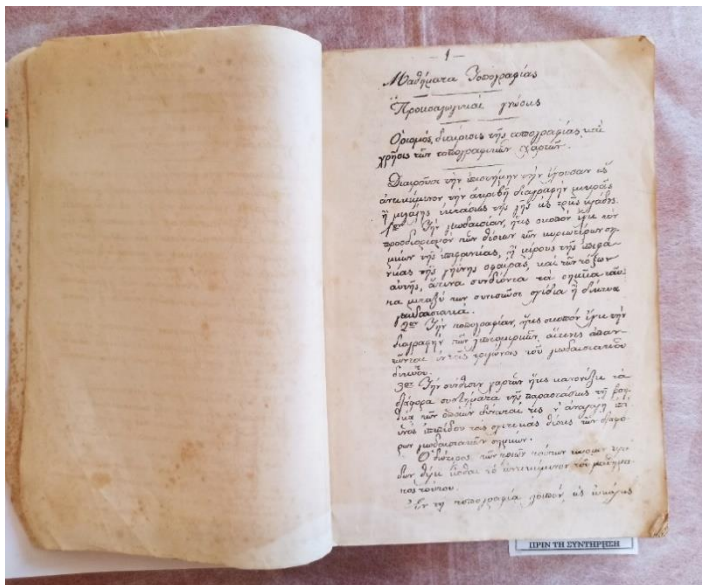 – 1 –
Μαθήματα Τοπογραφίας
Προεισαγωγικαὶ γνώσεις
Ὁρισμός, διαίρεσις τῆς τοπογραφίας καὶ
χρῆσις τῶν τοπογραφικῶν χαρτῶν.
Διαιροῦσι τὴν ἐπιστήμην τὴν ἔχουσαν ὡς
ἀντικείμενον τὴν ἀκριβῆ διαγραφὴν μικρᾶς
ἢ μεγάλης ἐκτάσεως τῆς γῆς εἰς τρεῖς κλάδους.
1ον Τὴν γεωδαισίαν, ἥτις σκοπὸν ἔχει τὸν
προσδιορισμὸν τῶν θέσεων τῶν κυριωτέρων ση-
μείων τῆς ἐπιφανείας, ἢ μέρους τῆς ἐπιφα-
νείας τῆς γηΐνης σφαίρας, καὶ τῶν τόξων
αὐτῆς, ἅτινα συνδέοντα τὰ σημεῖα ταῦ-
τα μεταξύ των συνιστῶσι σχέδια ἢ δίκτυα
γεωδαισιακά.
2ον Τὴν τοπογραφίαν, ἥτις σκοπὸν ἔχει τὴν
διαγραφὴν τῶν λεπτομερειῶν, αἵτινες ἀπαν-
τῶνται ἐντὸς τριγώνου τοῦ γεωδαισιακοῦ
δικτύου.
3ον Τὴν σύνθεσιν χαρτῶν ἥτις κανονίζει τὰ
διάφορα συστήματα τῆς παραστάσεως τῆς
διὰ τῶν ὁποίων δύναταί τις ν' ἀναγάγῃ ἐπὶ
ἑνὸς ἐπιπέδου τὰς σχετικὰς θέσεις τῶν διαφό-
ρων γεωδαισιακῶν σημείων.
Ὁ δεύτερος τῶν τριῶν τούτων
θέλει εἶσθαι τὸ ἀντικείμενον τοῦ μαθήμα-
τος τούτου.
Ἐν τῇ τοπογραφίᾳ λοιπόν, ὡς
ΠΡΙΝ ΤΗ ΣΥΝΤΗΡΗΣΗ